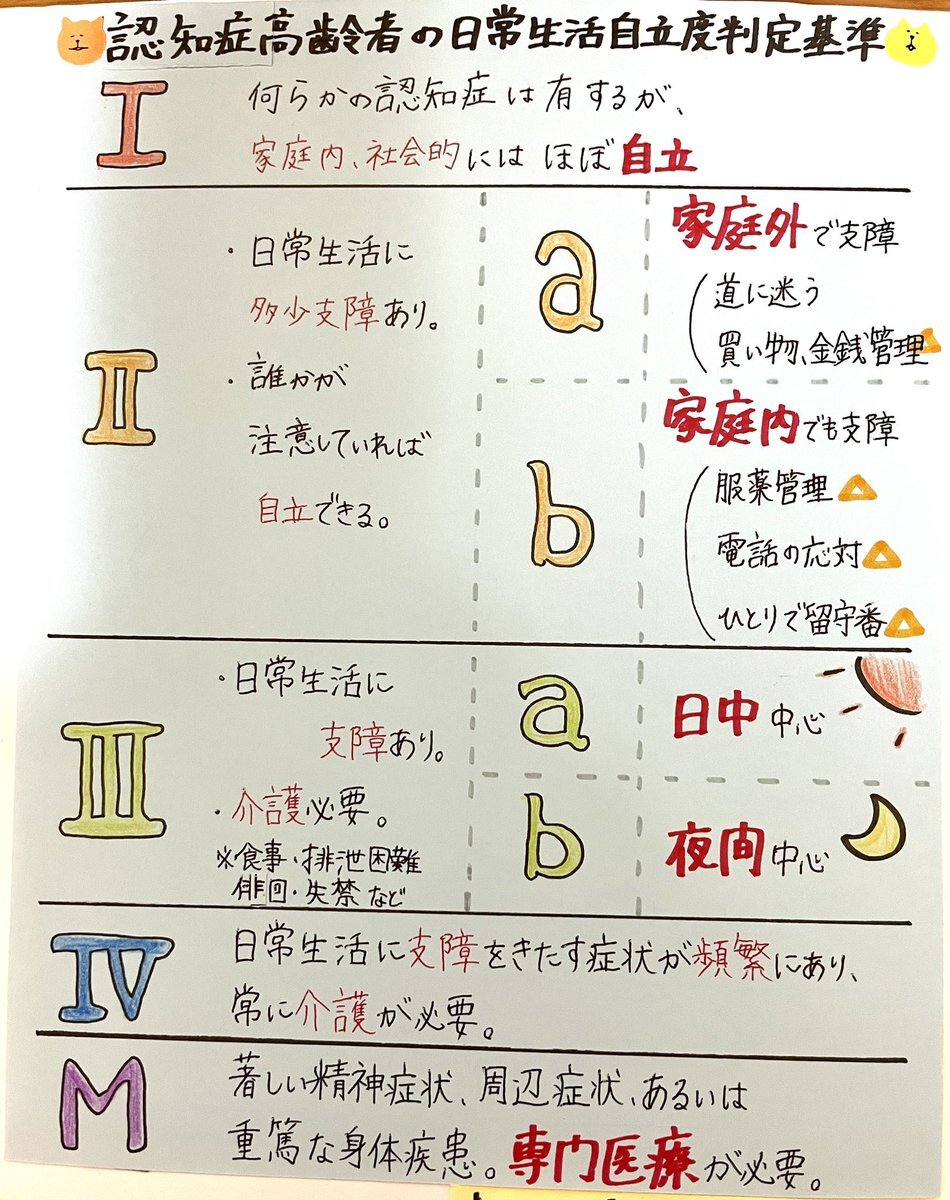 認知症高齢者の日常生活自立度判定基準
I
何らかの認知症は有するが、
家庭内、社会的にはほぼ自立
II
・日常生活に
多少支障あり。
・誰かが
注意していれば
自立できる。
a
家庭外で支障
道に迷う
買い物、金銭管理△
b
家庭内でも支障
服薬管理△
電話の応対△
ひとりで留守番△
III
・日常生活に
支障あり。
・介護必要。
※食事・排泄困難
俳回・失禁など
a
日中中心
b
夜間中心
IV
日常生活に支障をきたす症状が頻繁にあり、
常に介護が必要。
M
著しい精神症状、周辺症状、あるいは
重篤な身体疾患。専門医療が必要。